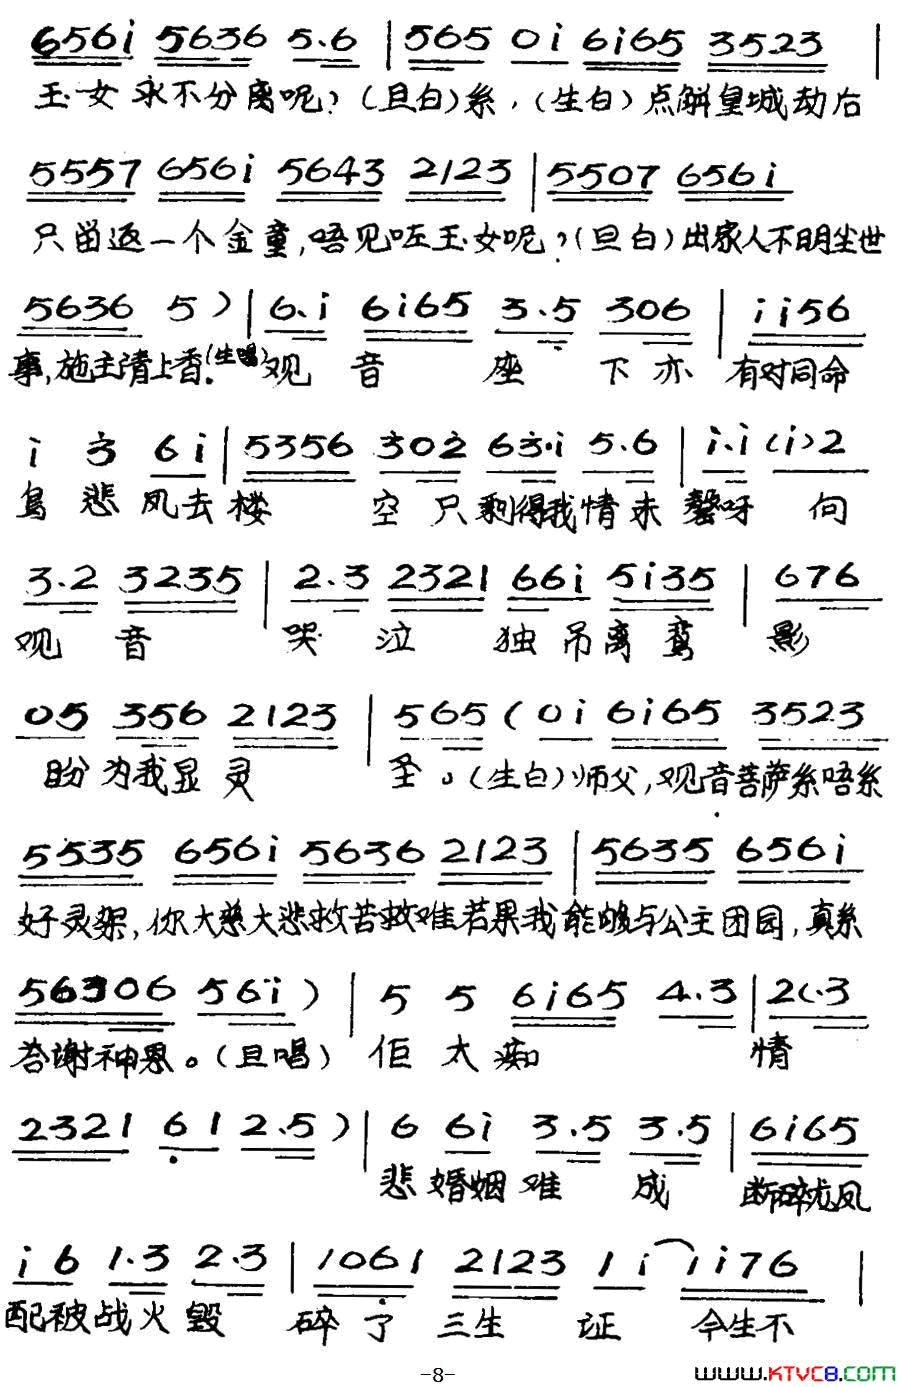 656i 5636 5.6 | 565 0i 6i65 3523 |
玉女永不分离呢?(旦白)系,(生白)点解皇城劫后
5557 656i 5643 2123 | 5507 656i
只留返一个金童,唔见咗玉女呢?(旦白)出家人不明尘世
5636 5 ) | 6.i 6i65 3.5 306 | ii56
事,施主请上香。(生唱)观音座下亦有对同命
i 3 6i | 5356 302 63.i 5.6 | i.i (i)2
鸟悲凤去楼空只剩得我情未罄呀向
3.2 3235 | 2.3 2321 66i 5i35 | 676
观音哭泣独吊离鸾影
05 356 2123 | 565 (0i 6i65 3523
盼为我显灵圣。(生白)师父,观音菩萨系唔系
5535 656i 5636 2123 | 5635 656i
好灵㗎,你大慈大悲救苦救难若果我能够与公主团园,真系
56306 56i ) | 5 5 6i65 4.3 | 2(.3
答谢神恩。(旦唱)佢太痴情
2321 61 2.5 ) | 6 6i 3.5 3.5 | 6i65
悲婚姻难成断碎龙凤
i6 1.3 2.3 | 1061 2123 1i 1i76 |
配被战火毁碎了三生证今生不
-8-
WWW.KTVC8.COM